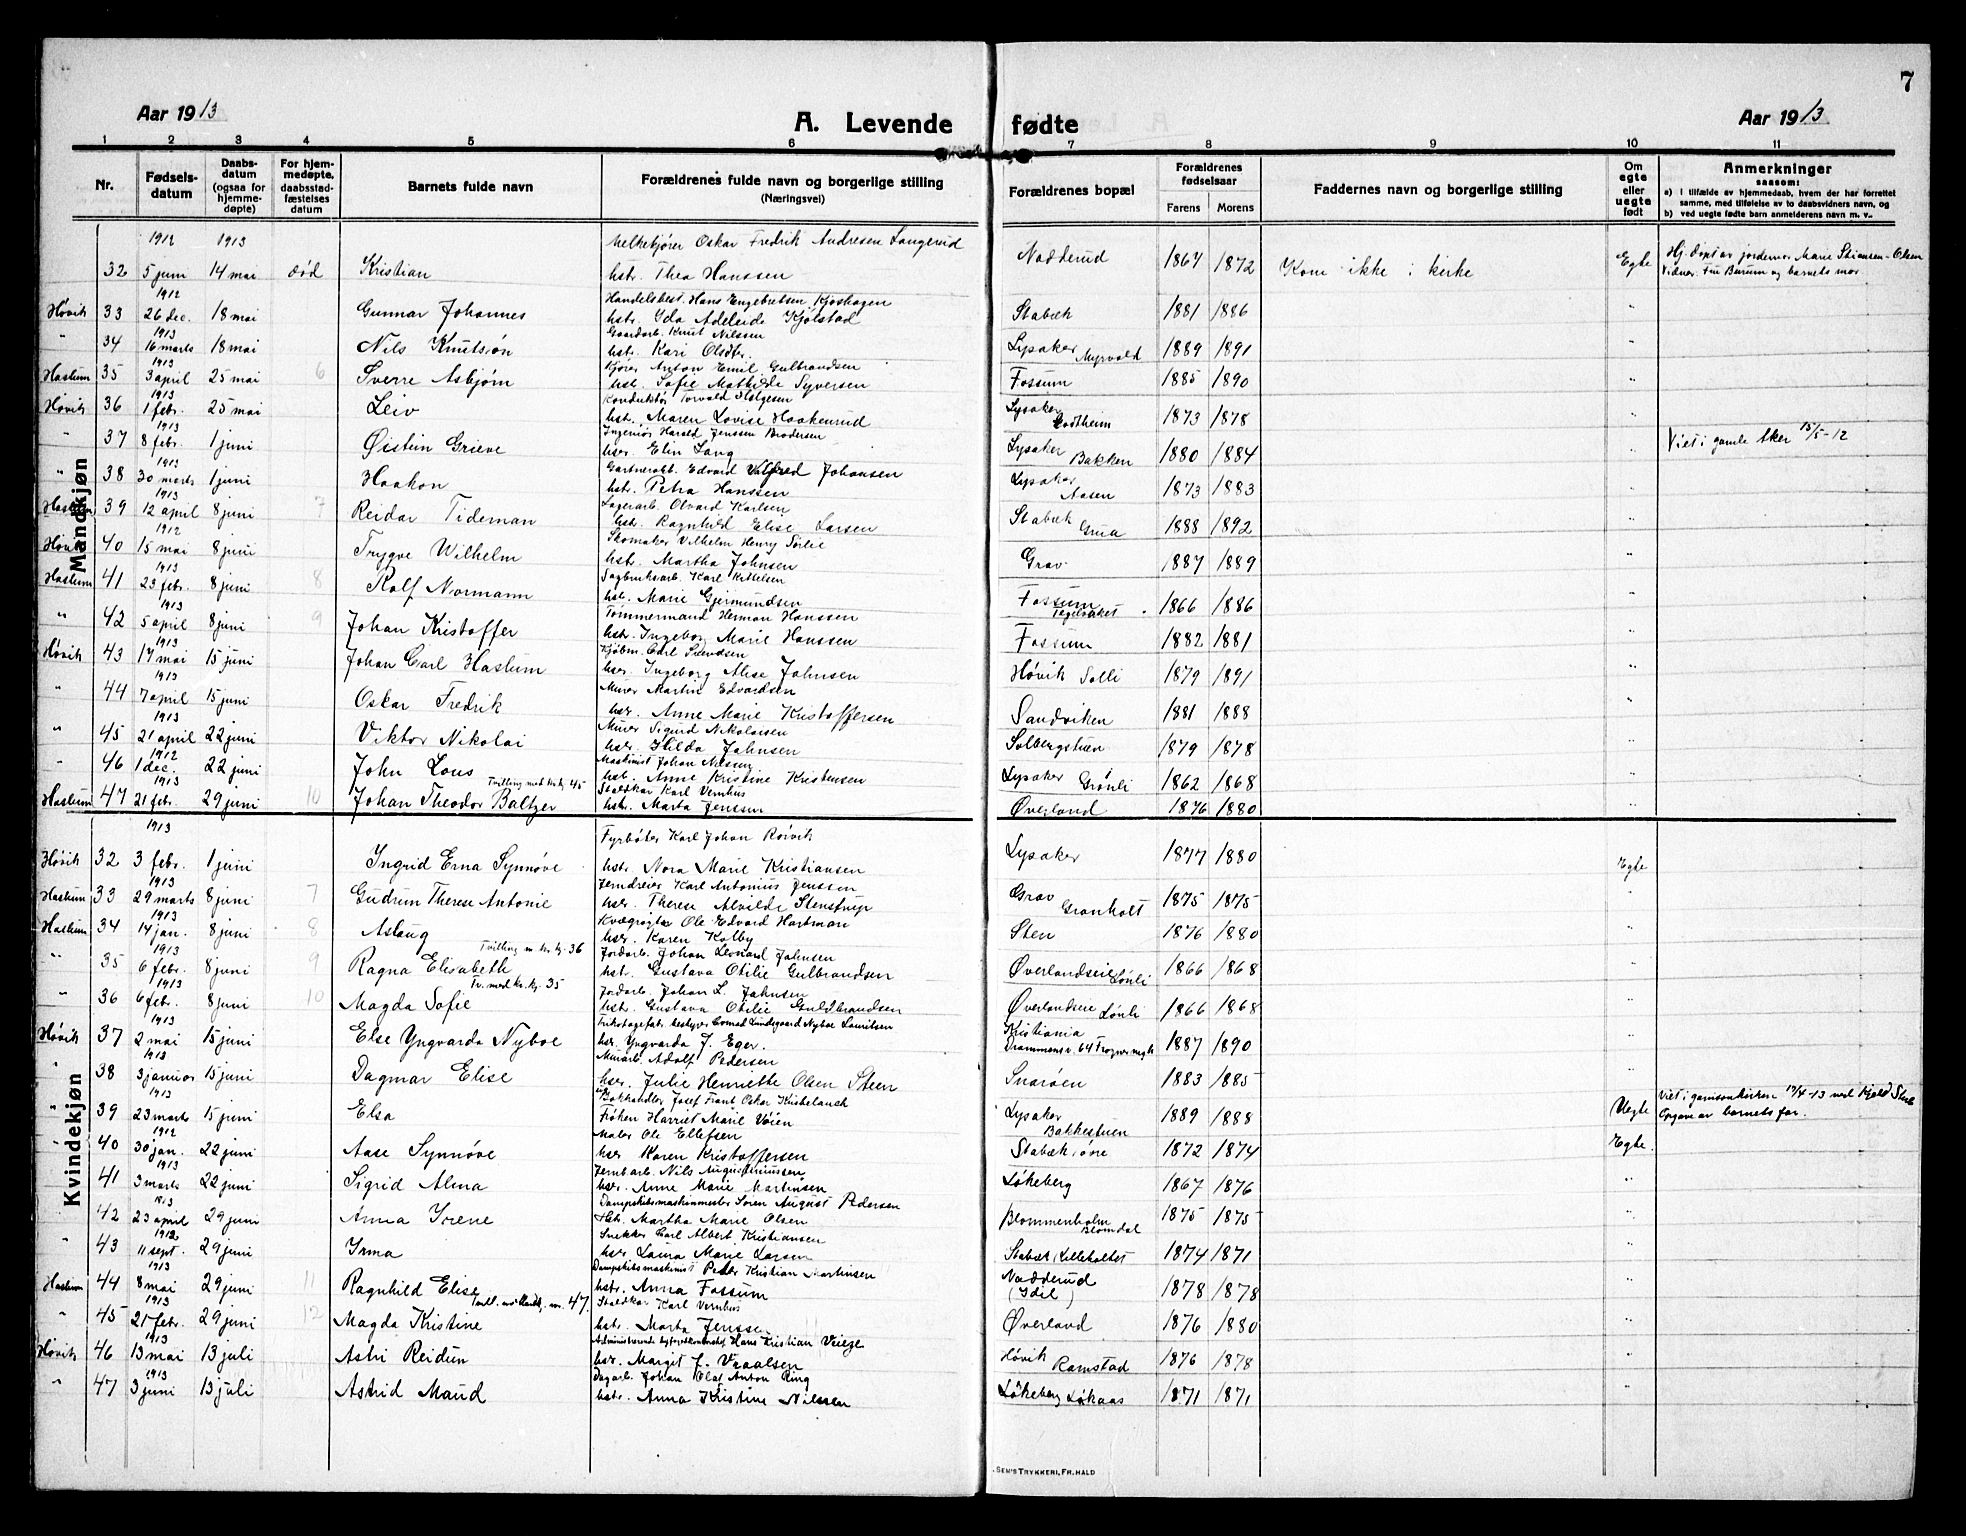 7
Aar 1913
A. Levende fødte
Aar 1913
1 2 3 4 5 6 7 8 9 10 11
Nr.
Fødsels-
datum
Daabs-
datum
(ogsaa for
hjemme-
døpte)
For hjem-
medøpte,
daabsstad-
fæstelses
datum
Barnets fulde navn
Forældrenes fulde navn og borgerlige stilling
(Næringsvei)
Forældrenes bopæl
Forældrenes
fødselsaar
Farens Morens
Faddernes navn og borgerlige stilling
Om
egte
eller
uegte
født
Anmerkninger
saasom:
a) i tilfælde av hjemmedaab, hvem der har forrettet
samme, med tilføielse av to daabsvidners navn, og
b) ved uegte fødte barn anmelderens navn m. v..
Mandkjøn
1912 1913 Melkekjører Oskar Fredrik Andresen Langerud
32 5 juni 14 mai død Kristian hstr. Thea Hanssen Nadderud 1867 1872 Kom ikke i kirke Egte Hj. døpt av jordemor Marie Stiansen-Olsen
Vidner: Fru Burum og barnets mor.
1912 Handelsbest. Hans Engebretsen Kjoshagen
Høvik 33 26 dec. 18 mai Gunnar Johannes hstr. Ida Adelaide Kjølstad Stabæk 1881 1886 "
1913 Gaardarb. Knut Nilssen
" 34 16 marts 18 mai Nils Knutsøn hstr. Kari Olsdtr. Lysaker Myrvold 1889 1891 "
1913 Kjører Anton Emil Gulbrandsen
Haslum 35 3 april 25 mai 6 Sverre Asbjørn hst. Sofie Mathilde Syversen Fossum 1885 1890 "
1913 Konduktør Torvald Helgesen
Høvik 36 1 febr. 25 mai Leiv hst. Maren Lovise Haakenrud Lysaker Godtheim 1873 1878 "
1913 Ingeniør Harald Jenssen Brodersen
" 37 8 febr. 1 juni Øistein Grieve hstr. Elin Lang Lysaker Bakken 1880 1884 " Viet i gamle Aker 15/5-12
1913 Gartnerarb. Edvard Valfred Johansen
" 38 30 marts 1 juni Haakon hstr. Petra Hanssen Lysaker Aasen 1873 1883 "
1913 Lagerarb. Olvard Karlsen
Haslum 39 12 april 8 juni 7 Reidar Tideman hst. Ragnhild Elise Larsen Stabæk Grua 1888 1892 "
1912 Skomaker Vilhelm Henry Sørlie
Høvik 40 15 mai 8 juni Trygve Wilhelm hstr. Martha Johnsen Grav 1887 1889 "
1913 Sagbruksarb. Karl Kittelsen
Haslum 41 23 febr. 8 juni 8 Rolf Normann hst. Marie Gjermundsen Fossum Teglverket 1866 1886 "
1913 Tømmermand Herman Hanssen
" 42 5 april 8 juni 9 Johan Kristoffer hstr. Ingeborg Marie Hanssen Fossum 1882 1881 "
1913 Kjøbm. Carl Svendsen
Høvik 43 17 mai 15 juni Johan Carl Haslum hsr. Ingeborg Alise Johnsen Høvik Solli 1879 1891 "
1913 Murer Martin Edvardsen
" 44 7 april 15 juni Oskar Fredrik hsr. Anne Marie Kristoffersen Sandviken 1881 1888 "
1913 Murer Sigurd Nikolaisen
" 45 21 april 22 juni Viktor Nikolai hsr. Hilda Johnsen Solbergstuen 1879 1878 "
1912 Maskinist Johan Nilsen
" 46 1 dec. 22 juni John Lous hst. Anne Kristine Kristensen Lysaker Grønli 1862 1868 "
1913 Tvilling med kv.kj. 45 Staldkar Karl Vernhus
Haslum 47 21 febr. 29 juni 10 Johan Theodor Baltzer hstr. Marta Jenssen Øverland 1876 1880 "
Kvindekjøn
1913 Fyrbøter Karl Johan Roivik
Høvik 32 3 febr. 1 juni Ingrid Erna Synnøve hstr. Nora Marie Kristiansen Lysaker 1877 1880 Egte
1913 Jerndreier Karl Antonius Jenssen
Haslum 33 29 marts 8 juni 7 Gudrun Therese Antonie hsr. Therese Alvilde Stenstrup Grav Granholt 1875 1875 "
1913 Kvægrøgter Ole Edvard Hartman
Haslum 34 14 jan. 8 juni 8 Aslaug hsr. Karen Kolby Sten 1876 1880 "
1913 Tvilling m kv. kj. 36 Jordarb. Johan Leonard Johnsen
" 35 6 febr. 8 juni 9 Ragna Elisabeth hst. Gustava Otilie Gulbrandsen Øverlandseie Lønli 1866 1868 "
1913 Tv. med kv. kj. 35 Jordarb. Johan L. Johnsen
" 36 6 febr. 8 juni 10 Magda Sofie hst. Gustava Otilie Guldbrandsen Øverlandseie Lønli 1866 1868 "
1913 Trikotagefabr. bestyrer Conrad Lindegaard Nyboe Lauritsen
Høvik 37 2 mai 15 juni Else Yngvarda Nyboe hsr. Yngvarda J. Eger. Kristiania Drammensv. 64 Frogner mgh 1887 1890 "
1913 Murarb. Adolf Pedersen
" 38 3 januar 15 juni Dagmar Elise hsr. Julie Henriette Olsen Steen Snarøen 1883 1885 "
1913 Bokhandler Josef Frant Oskar
" 39 23 marts 15 juni Elsa Frøken Harriet Marie Voien Lysaker Bakkestuen 1889 1888 Uegte Viet i garnisonskirken 17/4-13 ved Kjeld Stub
Opgave av barnets far.
1912 Maler Ole Ellefsen
" 40 30 jan. 22 juni Aase Synnøve hsr Karen Kristoffersen Stabæk øvre 1872 1874 Egte.
1913 Jernbarb. Nils Augustiniussen
" 41 3 marts 22 juni Sigrid Alma hsr. Anne Marie Martinsen Løkeberg 1867 1876 "
1913 Dampskibsmaskinmester Søren August Pedersen
" 42 23 april 29 juni Anna Irene Hst. Martha Marie Olsen Blommenholm Blomdal 1875 1875 "
1912 Snekker Carl Albert Kristiansen
" 43 11 sept. 29 juni Irma hsr. Laura Marie Larsen Stabæk, Lilleholtet 1874 1871 "
1913 Dampskibsmaskinist Peder Kristian Martinsen
Haslum 44 8 mai 29 juni 11 Ragnhild Elise hstr. Anna Fossum Nadderud (Idil) 1878 1878 "
1913 Tvill. med Mandkj. nr. 47. Staldkar Karl Vernhus
" 45 21 febr. 29 juni 12 Magda Kristine hstr. Marta Jensse Øverland 1876 1880 "
1913 Administrerende Hans Kristian Veisge
Høvik 46 13 mai 13 juli Astri Reidun hsr. Margit J. Vraalsen Høvik Ramstad 1876 1878 "
1913 Dagarb. Johan Olaf Anton Ring
" 47 3 juni 13 juli Astrid Maud hstr. Anna Kristine Nilssen Løkeberg Løkaas 1871 1871 "
SEM'S TRYKKERI, FR.HALD